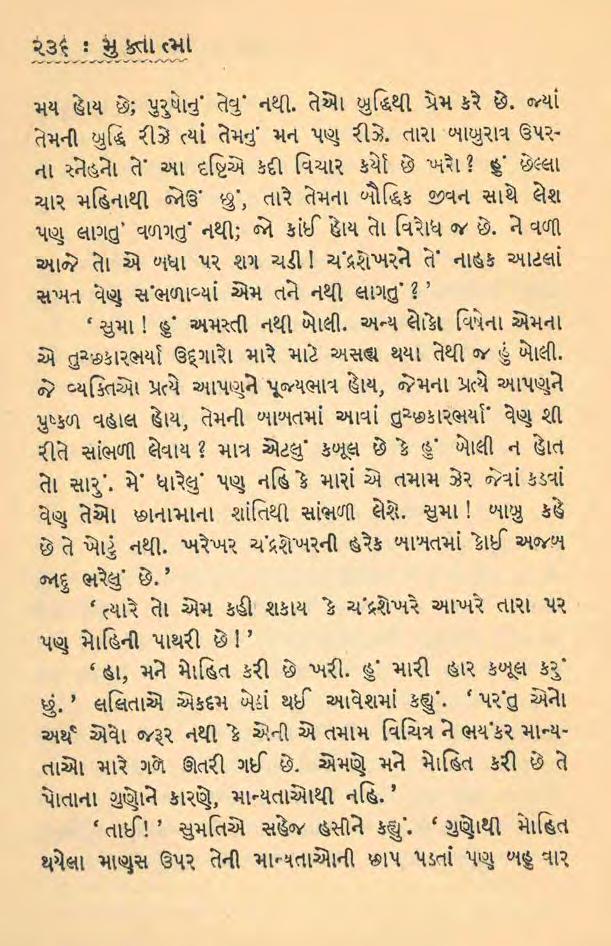 ૨૩૬ : મુક્તાત્મા
મય હોય છે; પુરુષોનું તેવું નથી. તેઓ બુદ્ધિથી પ્રેમ કરે છે. જ્યાં
તેમની બુદ્ધિ રીઝે ત્યાં તેમનું મન પણ રીઝે. તારા બાબુરાવ ઉપર-
ના સ્નેહનો તેં આ દૃષ્ટિએ કદી વિચાર કર્યો છે ખરો? હું છેલ્લા
ચાર મહિનાથી જોઉં છું, તારે તેમના બૌદ્ધિક જીવન સાથે લેશ
પણ લાગતું વળગતું નથી; જો કાંઈ હોય તો વિરોધ જ છે. ને વળી
આજે તો એ બધા પર શગ ચડી! ચંદ્રશેખરને તેં નાહક આટલાં
સખત વેણ સંભળાવ્યાં એમ તને નથી લાગતું?’
‘સુમા! હું અમસ્તી નથી બોલી. અન્ય લોકો વિષેના એમના
એ તુચ્છકારભર્યા ઉદ્ગારો મારે માટે અસહ્ય થયા તેથી જ હું બોલી.
જે વ્યક્તિઓ પ્રત્યે આપણને પૂજ્યભાવ હોય, જેમના પ્રત્યે આપણને
પુષ્કળ વહાલ હોય, તેમની બાબતમાં આવાં તુચ્છકારભર્યાં વેણ શી
રીતે સાંભળી લેવાય? માત્ર એટલું કબૂલ છે કે હું બોલી ન હોત
તો સારું. મેં ધારેલું પણ નહિ કે મારાં એ તમામ ઝેર જેવાં કડવાં
વેણ તેઓ છાનામાના શાંતિથી સાંભળી લેશે. સુમા! બાબુ કહે
છે તે ખોટું નથી. ખરેખર ચંદ્રશેખરની હરેક બાબતમાં કોઈ અજબ
જાદુ ભરેલું છે.’
‘ત્યારે તો એમ કહી શકાય કે ચંદ્રશેખરે આખરે તારા પર
પણ મોહિની પાથરી છે!’
‘હા, મને મોહિત કરી છે ખરી. હું મારી હાર કબૂલ કરું
છું.’ લલિતાએ એકદમ બેઠાં થઈ આવેશમાં કહ્યું. ‘પરંતુ એનો
અર્થ એવો જરૂર નથી કે એની એ તમામ વિચિત્ર ને ભયંકર માન્ય-
તાઓ મારે ગળે ઊતરી ગઈ છે. એમણે મને મોહિત કરી છે તે
પોતાના ગુણોને કારણે, માન્યતાઓથી નહિ.’
‘તાઈ!’ સુમતિએ સહેજ હસીને કહ્યું. ‘ગુણોથી મોહિત
થયેલા માણસ ઉપર તેની માન્યતાઓની છાપ પડતાં પણ બહુ વાર